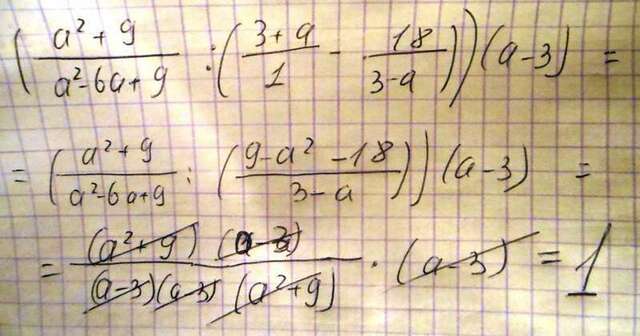 (a²+9/a²-6a+9 : (3+a/1 - 18/3-a))(a-3) =
= (a²+9/a²-6a+9 : (9-a²-18/3-a))(a-3) =
= (a²+9)(a-3)/(a-3)(a-3)(a²+9) · (a-3) = 1